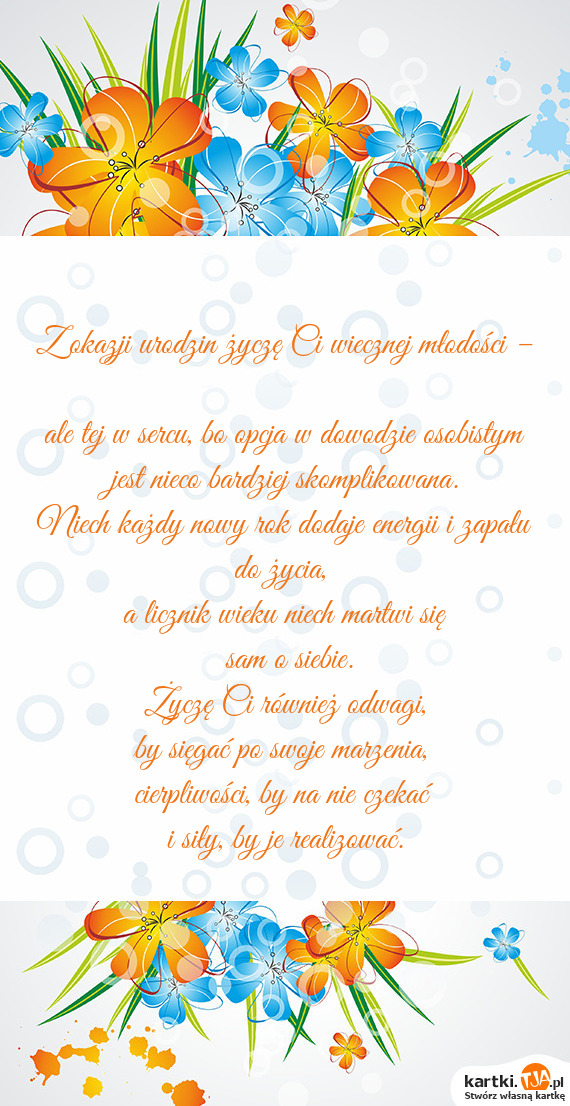 Z okazji urodzin życzę Ci wiecznej młodości –
ale tej w sercu, bo opcja w dowodzie osobistym
jest nieco bardziej skomplikowana.
Niech każdy nowy rok dodaje energii i zapału
do życia,
a licznik wieku niech martwi się
sam o siebie.
Życzę Ci również odwagi,
by sięgać po swoje marzenia,
cierpliwości, by na nie czekać
i siły, by je realizować.
kartki.TJA.pl
Stwórz własną kartkę